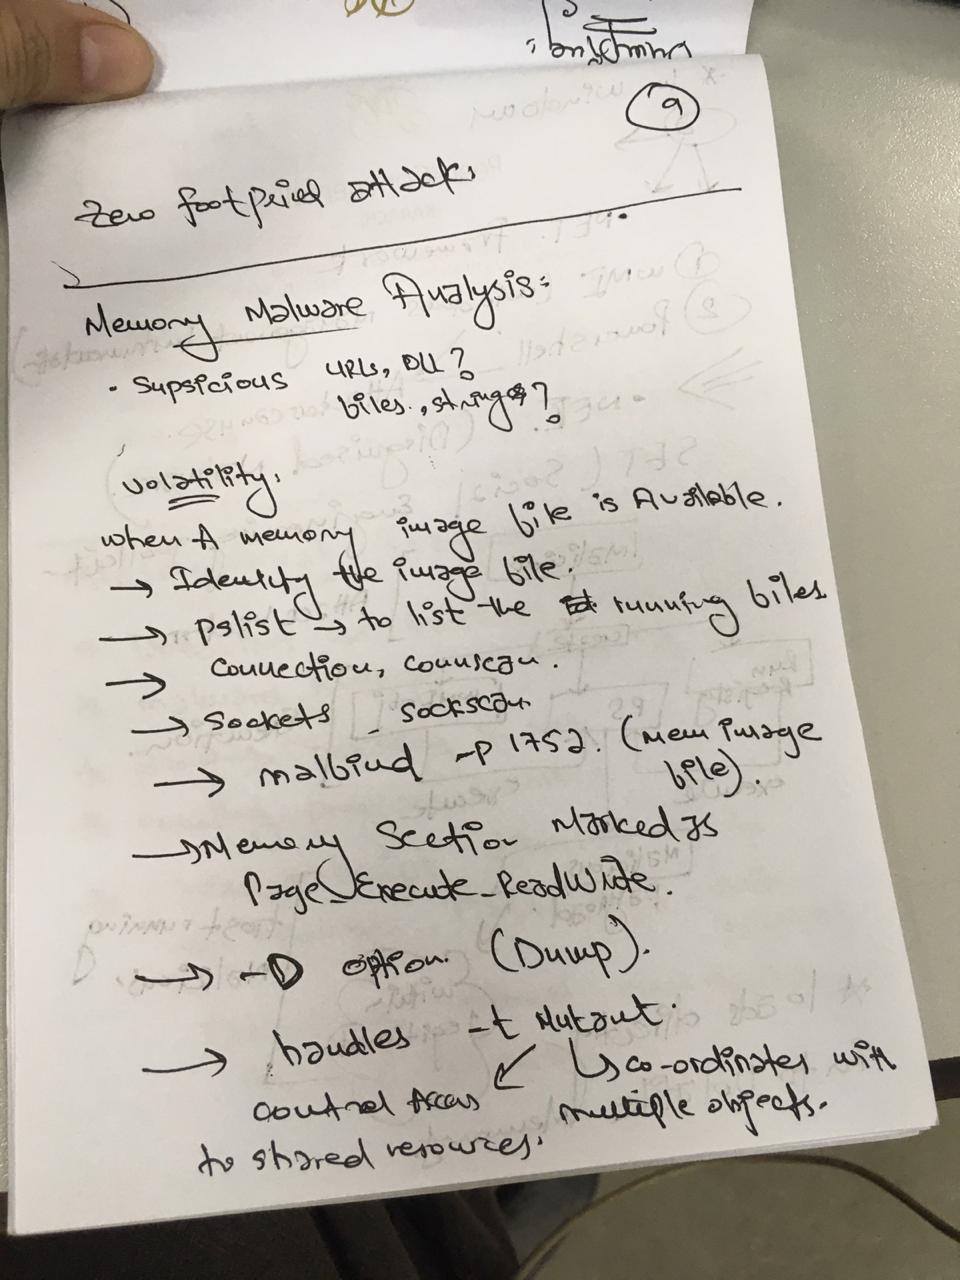 9
Zero footprint attack.
Memory Malware Analysis:
• Supsicious URLs, DLL?
files, strings?
Volatility.
when A memory image file is Available.
→ Identify the image file.
→ pslist → to list the running files
→ Connection, connscan.
→ Sockets sockscan
→ malfind -p 1752. (mem image
file).
→ Memory Section Marked as
Page_Execute_ReadWrite.
→ -D option (Dump).
→ handles -t Mutant.
↙ ↳ co-ordinates with
control Access multiple objects.
to shared resources.